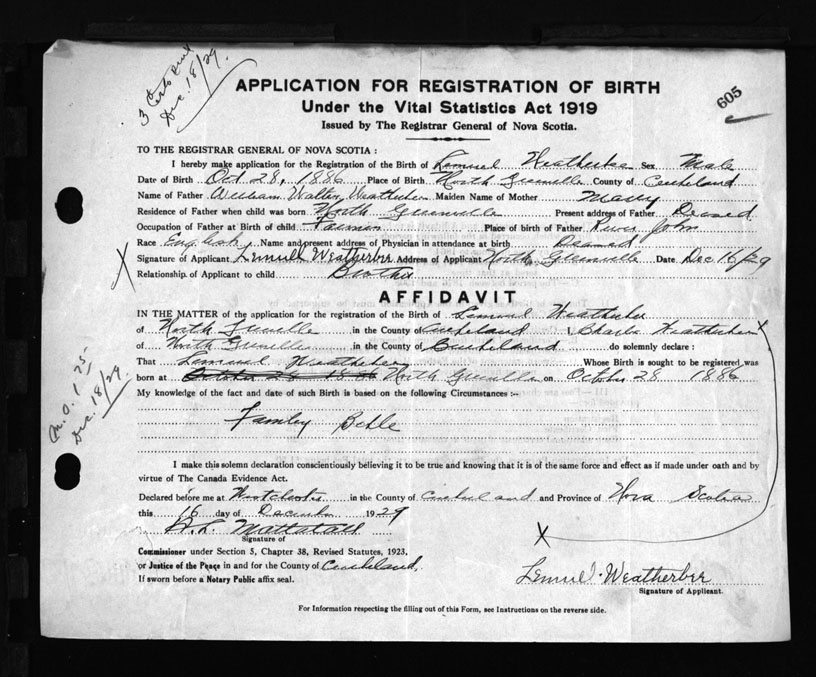 3 Certs
Dec. 18/29.
605
APPLICATION FOR REGISTRATION OF BIRTH
Under the Vital Statistics Act 1919
Issued by The Registrar General of Nova Scotia.
TO THE REGISTRAR GENERAL OF NOVA SCOTIA :
I hereby make application for the Registration of the Birth of Lemuel Weatherbee Sex Male
Date of Birth Oct 28, 1886 Place of Birth North Greenville County of Cumberland
Name of Father William Walter Weatherbee Maiden Name of Mother Mary
Residence of Father when child was born North Greenville Present address of Father Deceased
Occupation of Father at Birth of child Farmer Place of birth of Father River John
Race English Name and present address of Physician in attendance at birth Deceased
Signature of Applicant Lemuel Weatherbee Address of Applicant North Greenville Date Dec 16/29
Relationship of Applicant to child Brother
AFFIDAVIT
IN THE MATTER of the application for the registration of the Birth of Lemuel Weatherbee
of North Greenville in the County of Cumberland I, Charles Weatherbee
of North Greenville in the County of Cumberland do solemnly declare :
That Lemuel Weatherbee Whose Birth is sought to be registered was
born at October 28 1886 North Greenville on October 28 1886
My knowledge of the fact and date of such Birth is based on the following Circumstances :-
Famley Bible
I make this solemn declaration conscientiously believing it to be true and knowing that it is of the same force and effect as if made under oath and by
virtue of The Canada Evidence Act.
Declared before me at Westchester in the County of Cumberland and Province of Nova Scotia
this 16 day of December 1929
Mattatall
Signature of
Commissioner under Section 5, Chapter 38, Revised Statutes, 1923,
or Justice of the Peace in and for the County of Cumberland,
If sworn before a Notary Public affix seal.
Lemuel Weatherbee
Signature of Applicant.
For Information respecting the filling out of this Form, see Instructions on the reverse side.
M.O. 1.25
Dec. 18/29.